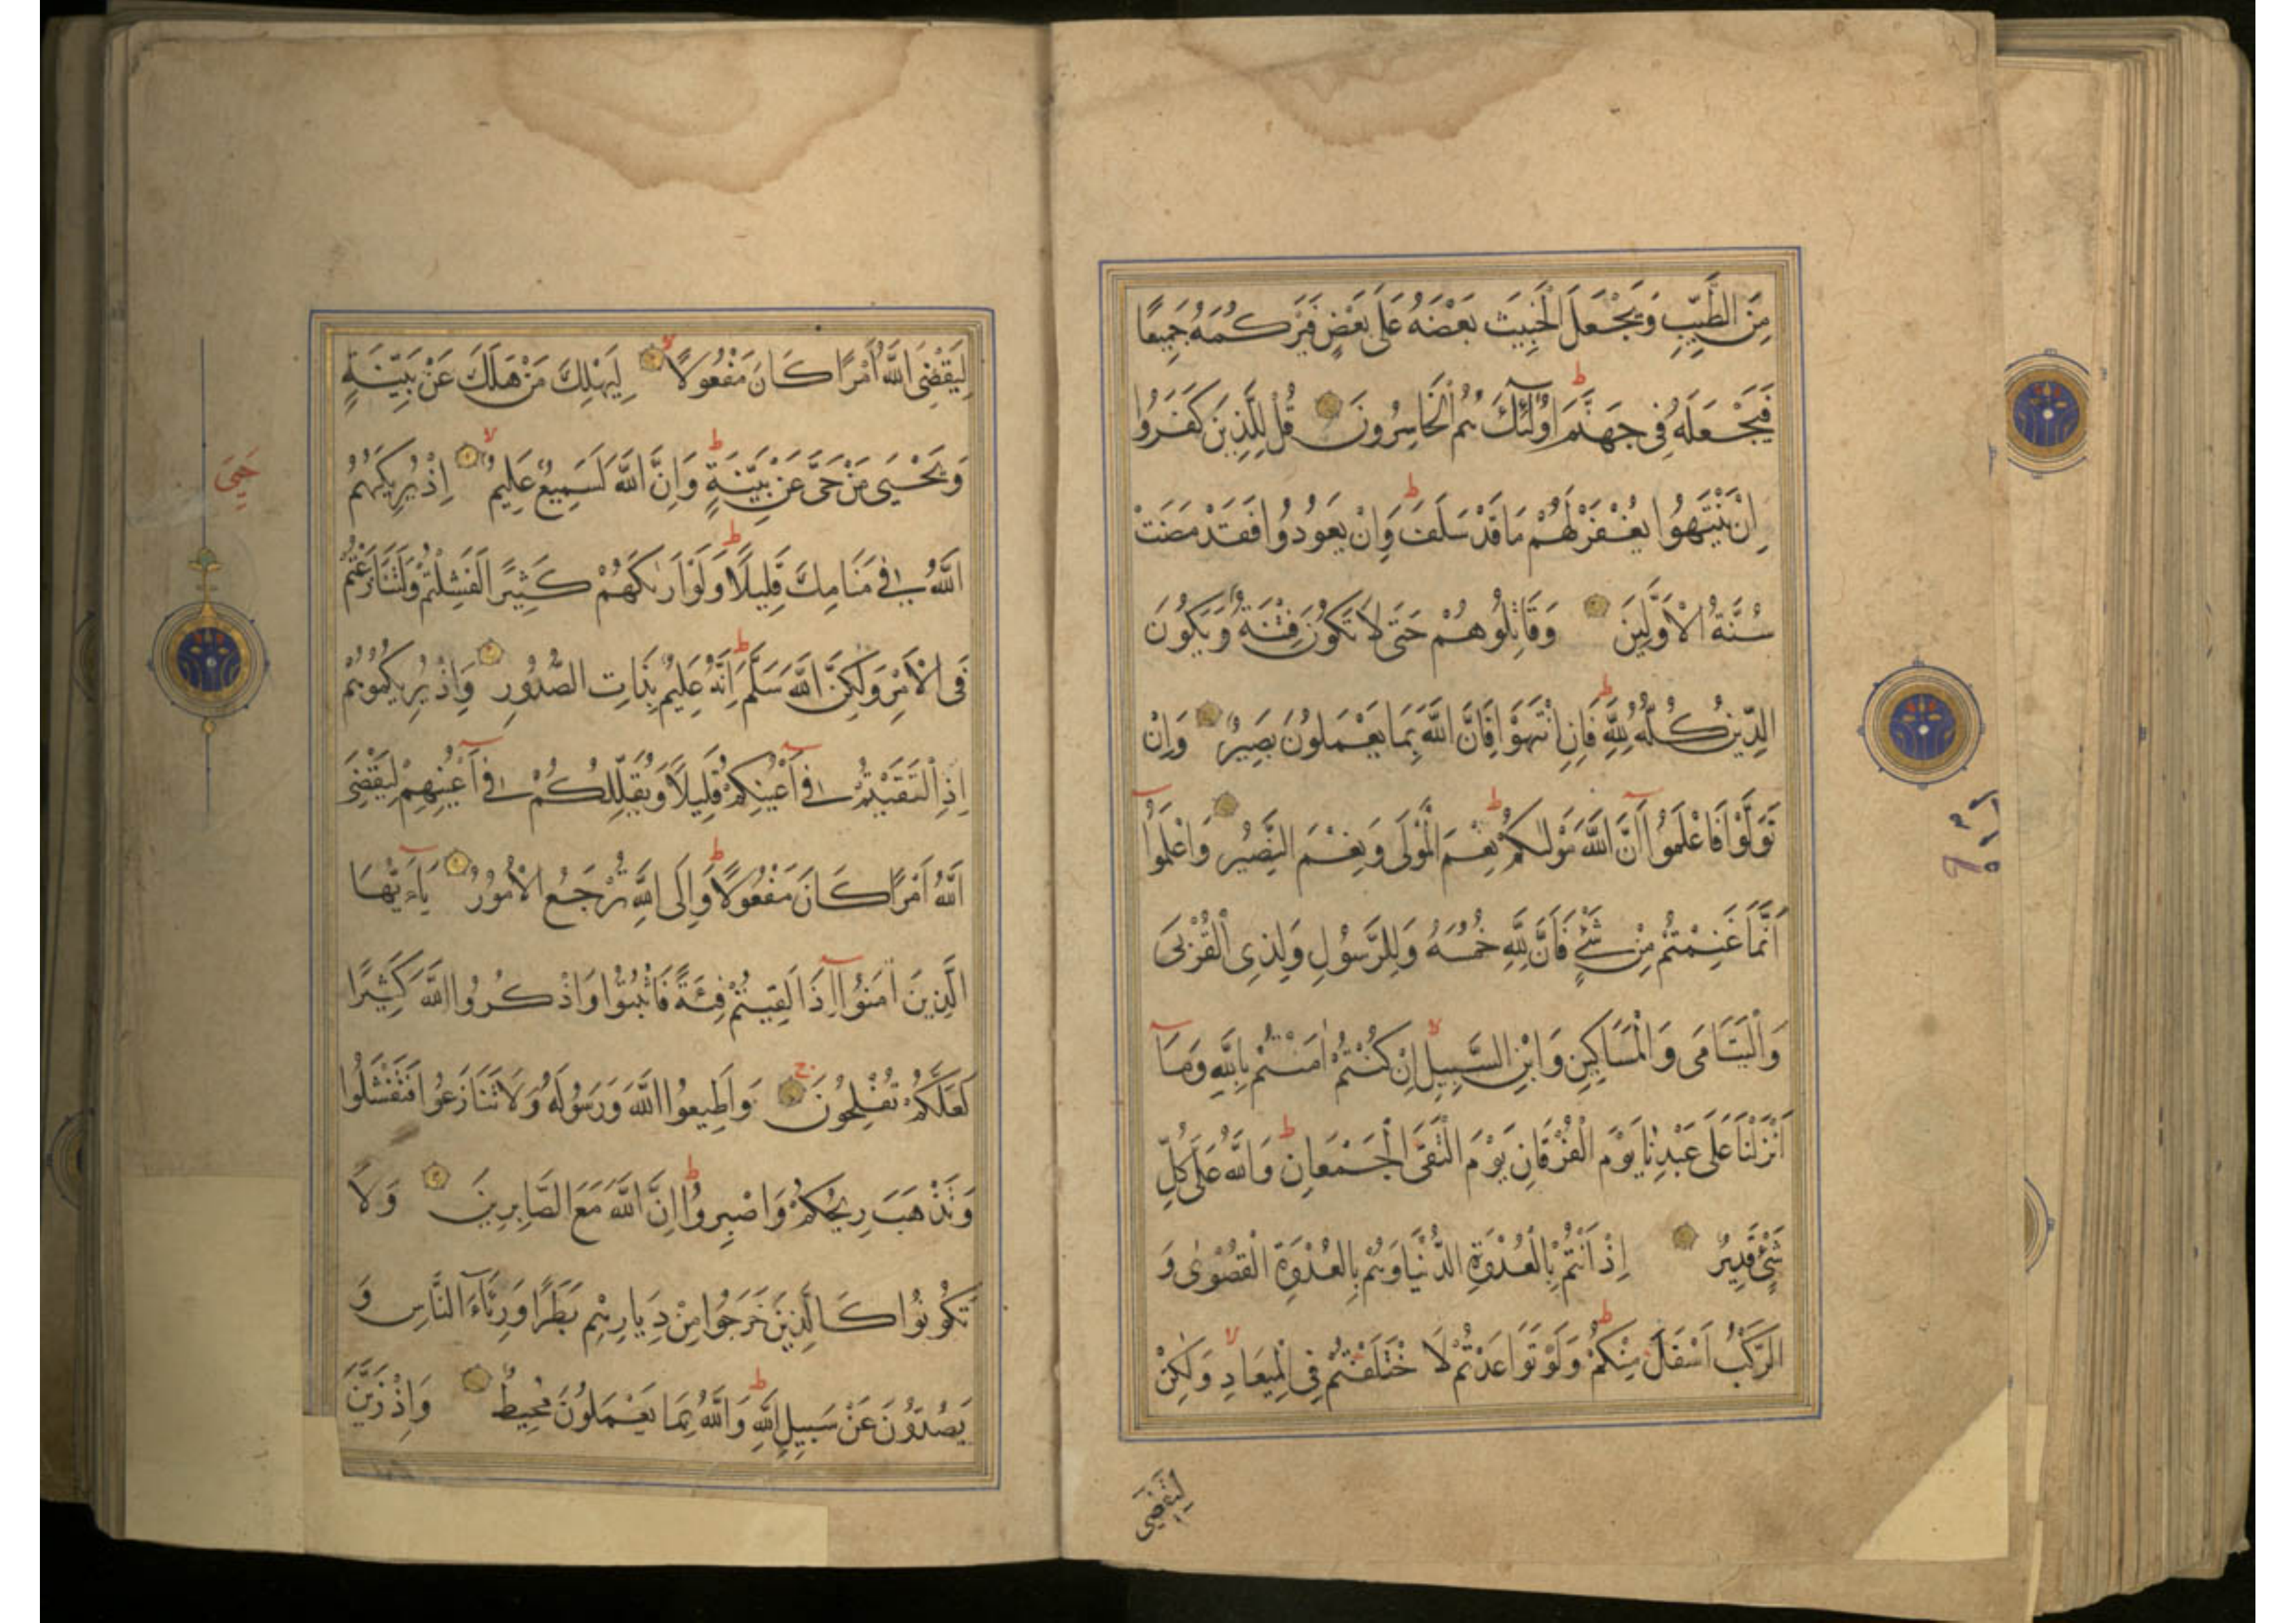 مِنَ الطَّيِّبِ وَيَجْعَلَ الْخَبِيثَ بَعْضَهُ عَلَى بَعْضٍ فَيَرْكُمَهُ جَمِيعًا
فَيَجْعَلَهُ فِي جَهَنَّمَ ط اُولٰٓئِكَ هُمُ الْخَاسِرُونَ قُلْ لِلَّذِينَ كَفَرُوا
اِنْ يَنْتَهُوا يُغْفَرْ لَهُمْ مَا قَدْ سَلَفَ ط وَاِنْ يَعُودُوا فَقَدْ مَضَتْ
سُنَّةُ الْاَوَّلِينَ وَقَاتِلُوهُمْ حَتَّى لَا تَكُونَ فِتْنَةٌ وَيَكُونَ
الدِّينُ كُلُّهُ لِلَّهِ ط فَاِنِ انْتَهَوْا فَاِنَّ اللَّهَ بِمَا يَعْمَلُونَ بَصِيرٌ وَاِنْ
تَوَلَّوْا فَاعْلَمُوا اَنَّ اللَّهَ مَوْلٰىكُمْ ط نِعْمَ الْمَوْلَى وَنِعْمَ النَّصِيرُ وَاعْلَمُوا
اَنَّمَا غَنِمْتُمْ مِنْ شَيْءٍ فَاَنَّ لِلَّهِ خُمُسَهُ وَلِلرَّسُولِ وَلِذِي الْقُرْبَى
وَالْيَتَامَى وَالْمَسَاكِينِ وَابْنِ السَّبِيلِ لا اِنْ كُنْتُمْ اٰمَنْتُمْ بِاللَّهِ وَمَآ
اَنْزَلْنَا عَلَى عَبْدِنَا يَوْمَ الْفُرْقَانِ يَوْمَ الْتَقَى الْجَمْعَانِ ط وَاللَّهُ عَلَى كُلِّ
شَيْءٍ قَدِيرٌ اِذْ اَنْتُمْ بِالْعُدْوَةِ الدُّنْيَا وَهُمْ بِالْعُدْوَةِ الْقُصْوٰى وَ
الرَّكْبُ اَسْفَلَ مِنْكُمْ ط وَلَوْ تَوَاعَدْتُمْ لَا خْتَلَفْتُمْ فِي الْمِيعَادِ لا وَلٰكِنْ
لِيَقْضِيَ
لِيَقْضِيَ اللَّهُ اَمْرًا كَانَ مَفْعُولًا لا لِيَهْلِكَ مَنْ هَلَكَ عَنْ بَيِّنَةٍ
وَيَحْيَى مَنْ حَيَّ عَنْ بَيِّنَةٍ ط وَاِنَّ اللَّهَ لَسَمِيعٌ عَلِيمٌ لا اِذْ يُرِيكَهُمُ
حَيِيَ
اللَّهُ فِي مَنَامِكَ قَلِيلًا ط وَلَوْ اَرٰىكَهُمْ كَثِيرًا لَفَشِلْتُمْ وَلَتَنَازَعْتُمْ
فِي الْاَمْرِ وَلٰكِنَّ اللَّهَ سَلَّمَ ط اِنَّهُ عَلِيمٌ بِذَاتِ الصُّدُورِ وَاِذْ يُرِيكُمُوهُمْ
اِذِ الْتَقَيْتُمْ فِي اَعْيُنِكُمْ قَلِيلًا وَيُقَلِّلُكُمْ فِي اَعْيُنِهِمْ لِيَقْضِيَ
اللَّهُ اَمْرًا كَانَ مَفْعُولًا ط وَاِلَى اللَّهِ تُرْجَعُ الْاُمُورُ يَآءَيُّهَا
الَّذِينَ اٰمَنُوا اِذَا لَقِيتُمْ فِئَةً فَاثْبُتُوا وَاذْكُرُوا اللَّهَ كَثِيرًا
لَعَلَّكُمْ تُفْلِحُونَ ج وَاَطِيعُوا اللَّهَ وَرَسُولَهُ وَلَا تَنَازَعُوا فَتَفْشَلُوا
وَتَذْهَبَ رِيحُكُمْ وَاصْبِرُوا ط اِنَّ اللَّهَ مَعَ الصَّابِرِينَ وَلَا
تَكُونُوا كَالَّذِينَ خَرَجُوا مِنْ دِيَارِهِمْ بَطَرًا وَرِئَآءَ النَّاسِ وَ
يَصُدُّونَ عَنْ سَبِيلِ اللَّهِ ط وَاللَّهُ بِمَا يَعْمَلُونَ مُحِيطٌ وَاِذْ زَيَّنَ